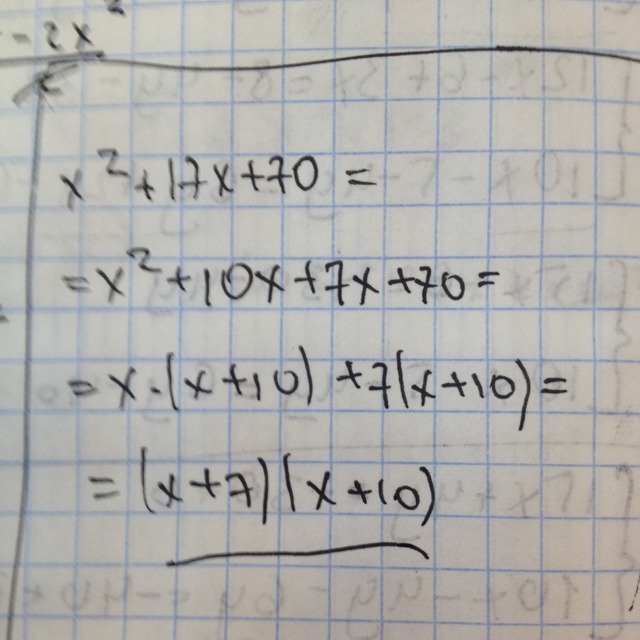 -2x²
x²+17x+70=
=x²+10x+7x+70=
=x·(x+10)+7(x+10)=
=(x+7)(x+10)